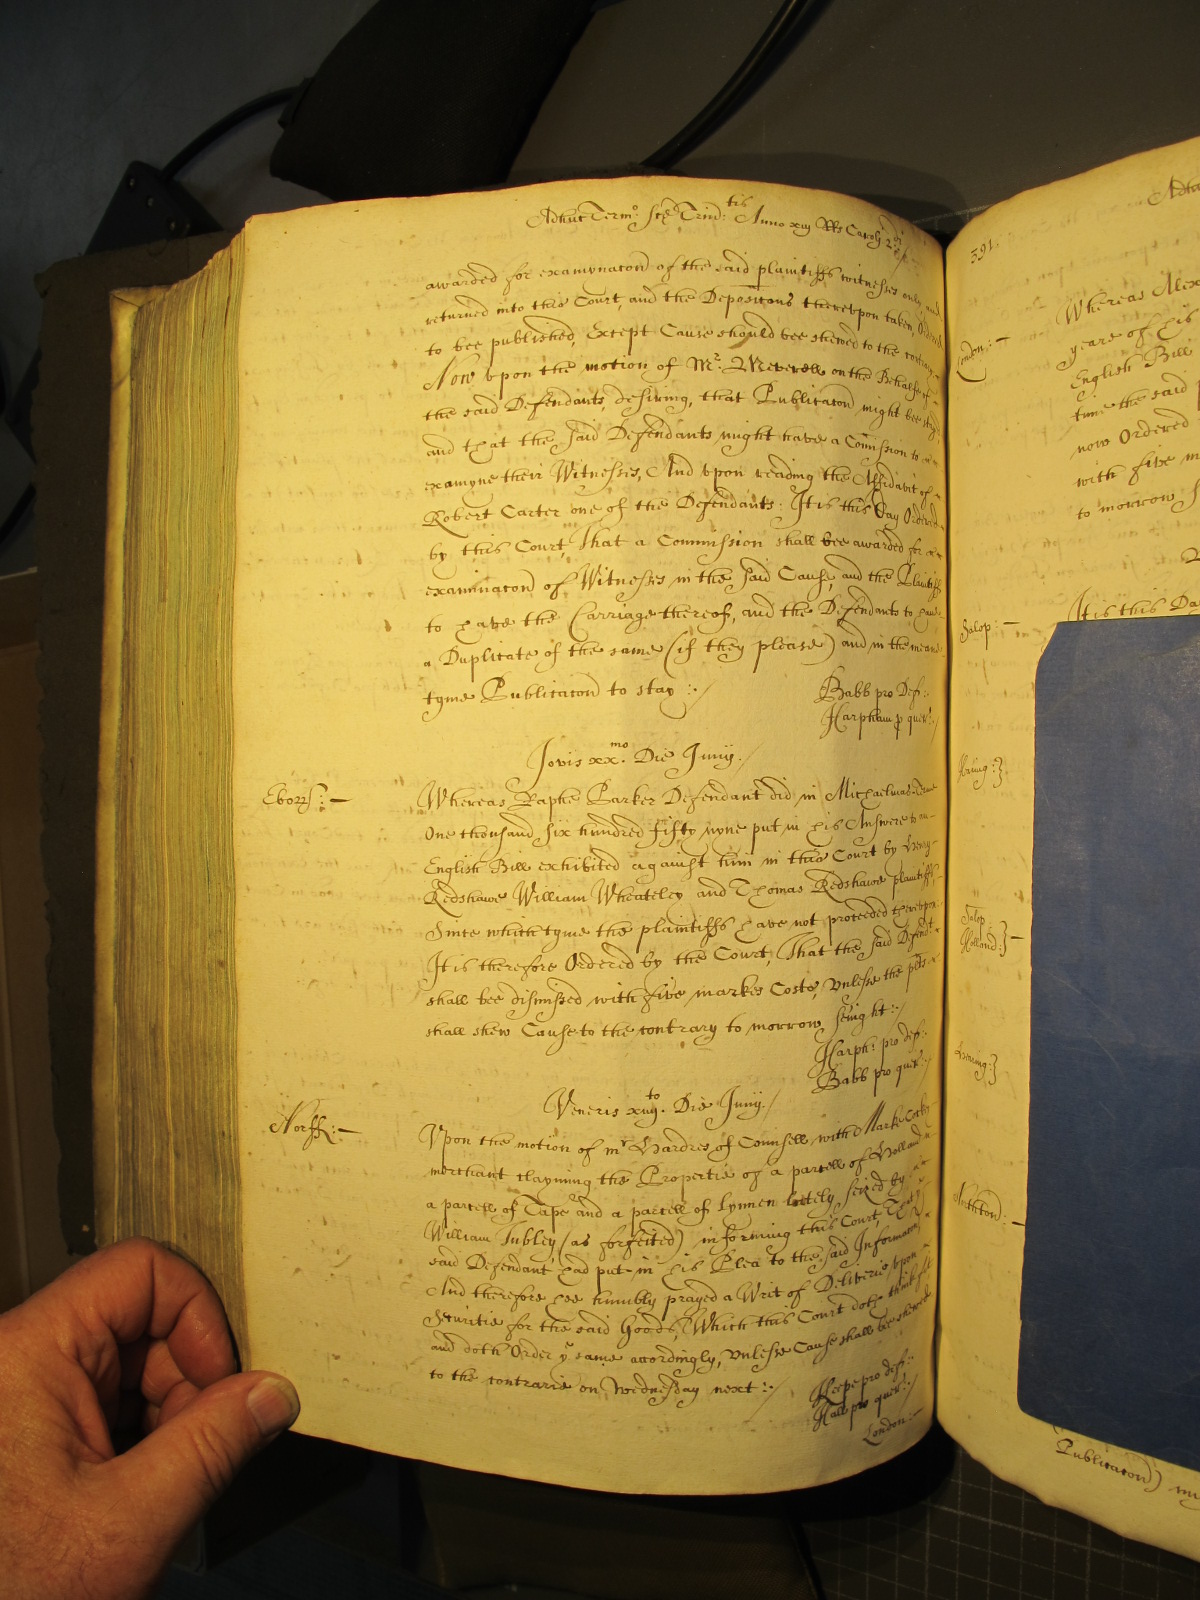 Adhuc Termo: Sce Trin:tis Anno xiij RRs Caroli 2di
awarded for examynacon of the said plaintiffs witnesses only and
returned into this Court, and the Deposicons therevpon taken, Ordered
to bee published, Except Cause should bee shewed to the contrary
Now vpon the motion of Mr. Meverell on the Behalfe of
the said Defendants, desiring, that Publicacon might bee stayd
and that the said Defendants might have a Comission to
examyne their Witnesses, And vpon reading the Affidavit of
Robert Carter one of the Defendants; It is this Day Ordered
by this Court, That a Commission shall bee awarded for
examinacon of Witnesses in the said Cause, and the Plaintiffs
to have the Carriage thereof, and the Defendants to have
a Duplicate of the same (if they please) and in the meane
tyme Publicacon to stay :/
Babb pro Def::
Harpham p quer:/
Jovis xx.mo Die Junij./
Eborz: —
Whereas Raphe Barker Defendant did in Michaelmas Terme
One thousand six hundred fifty nyne put in his Answere to an
English Bill exhibited against him in this Court by Henry
Redshawe William Wheateley and Thomas Redshawe plaintiffs
Since which tyme the plaintiffs have not proceeded therevpon
It is therefore Ordered by the Court, That the said Defendt
shall bee dismissed with five markes Costs, vnlesse the plts
shall shew Cause to the contrary to morrow sevight :/
Harph: pro def::
Babb pro quer:/
Veneris xiiijto. Die Junij./
Norff: —
Vpon the motion of mr Hardres of Counsell with Marke Cocky
merchant clayming the Propertie of a parcell of Holland
a parcell of Tape and a parcell of Lynnen lately seized by
William Tubley (as forfeited) informing this Court, That
said Defendant had put in his Plea to the said Informacon
And therefore hee humbly prayed a Writ of Deliverie vpon
Securitie for the said Goods, Which this Court doth think fitt
and doth Order ye same accordingly, vnlesse Cause shall bee shewed
to the contrarie on Wednesday next :/
Keepe pro def::
Hall pro quer:/
London: —
391
Whereas Alex
London: —
yeare of his
English Bill
time the said
now Ordered
with five m
to morrow S
Salop: —
It is this Da
Salop
Holland: } —
Publicacon) my